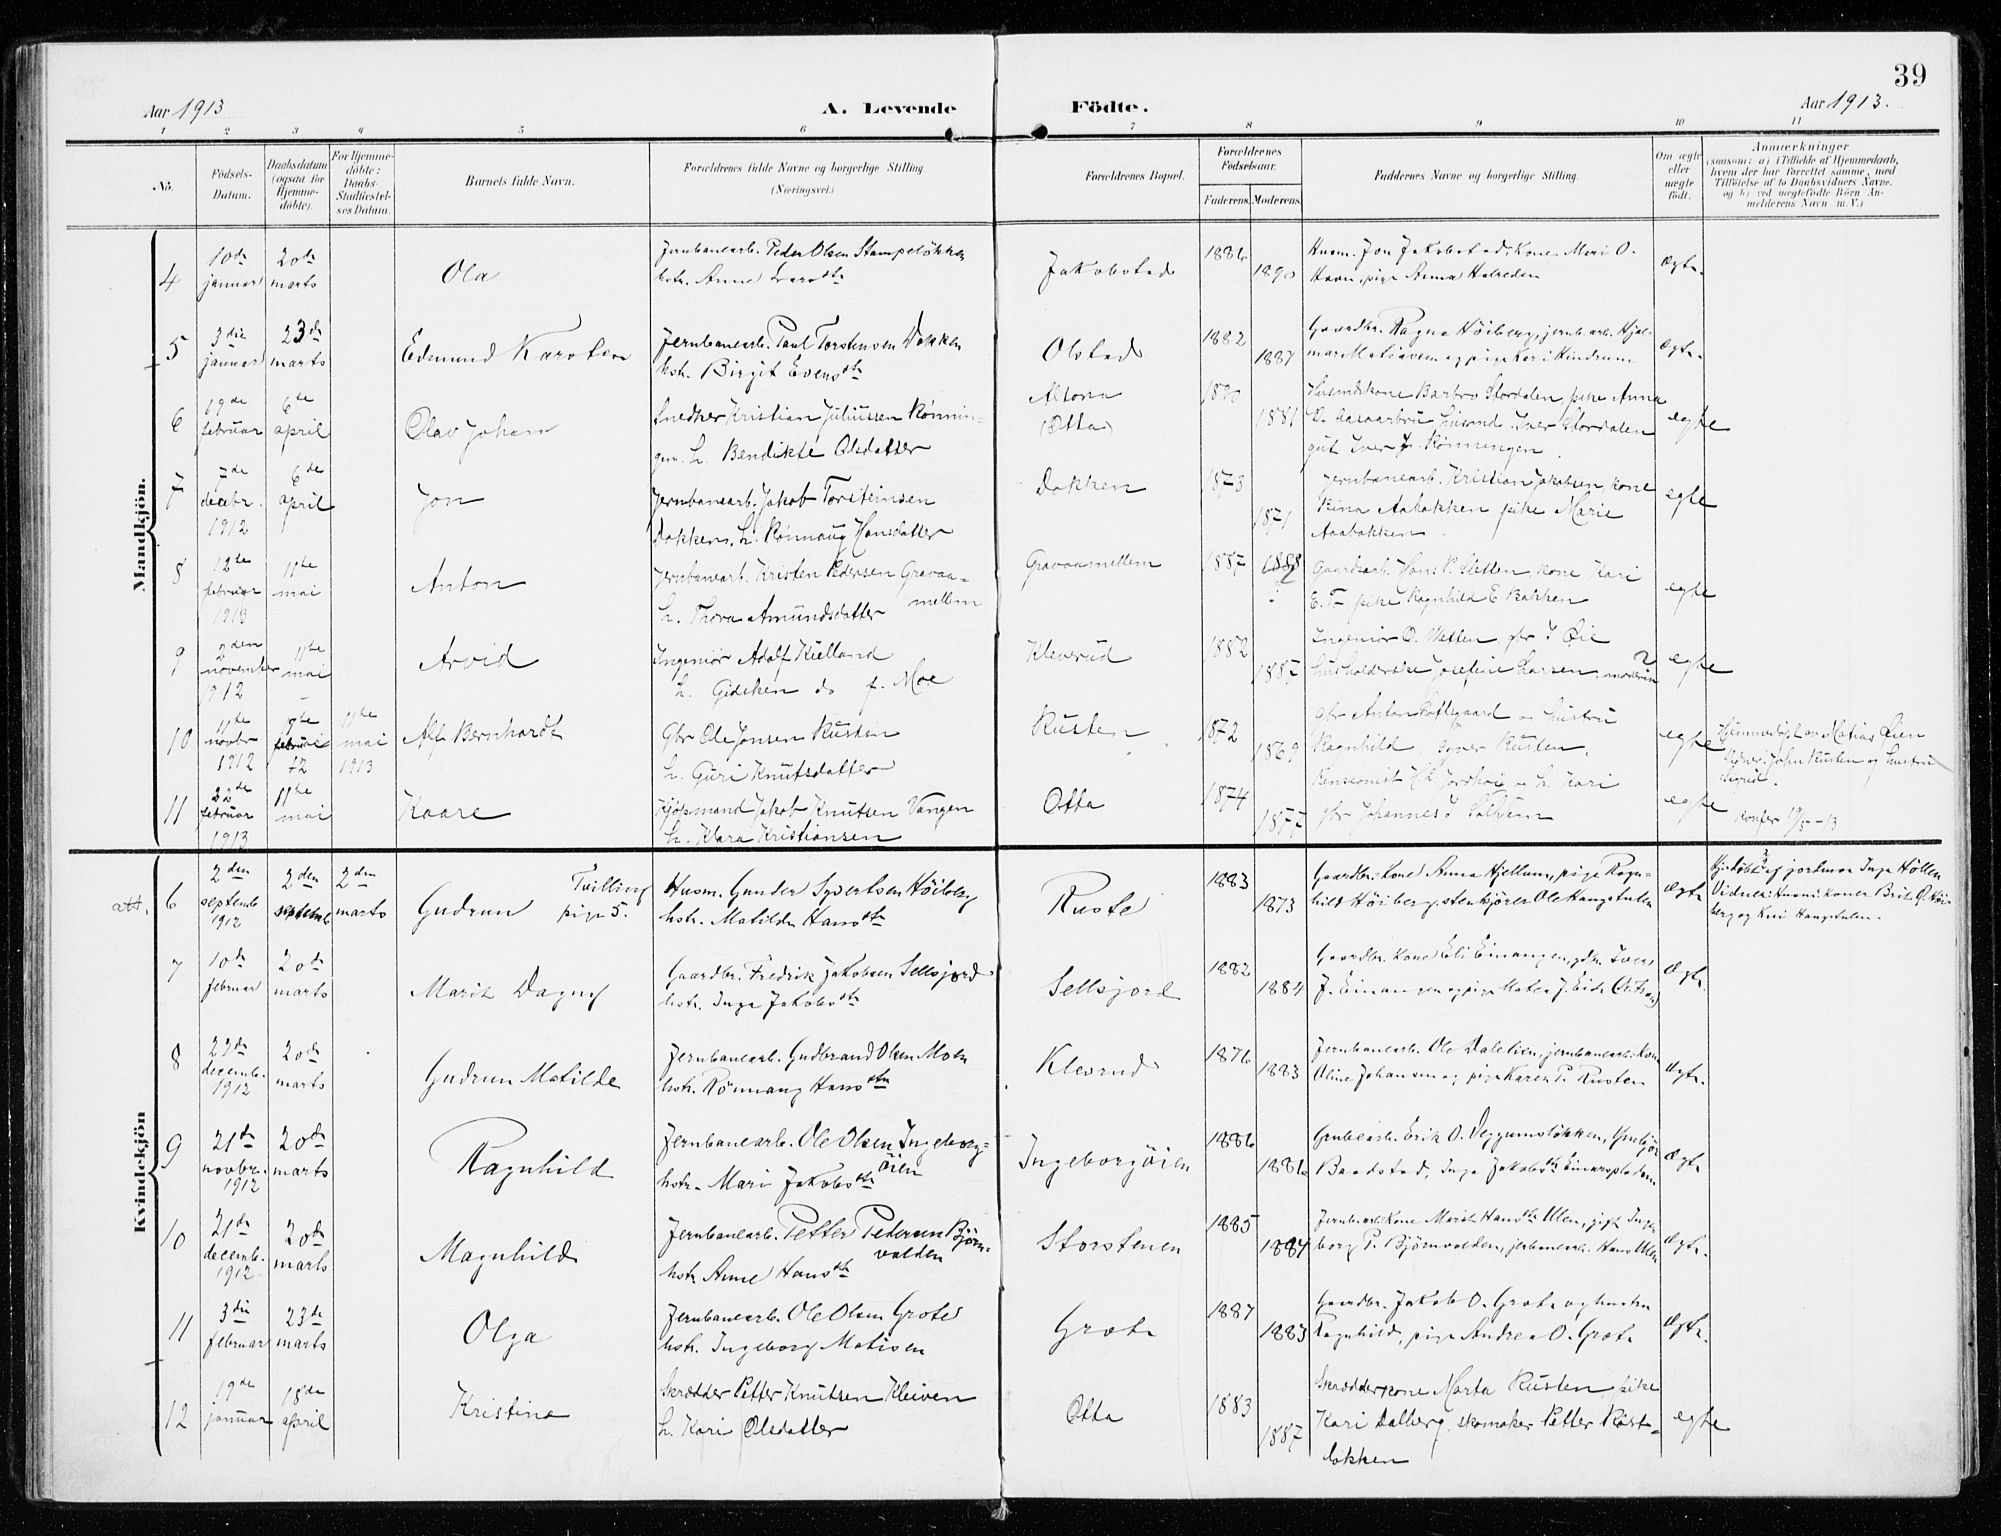 39
Aar 1913
A. Levende Födte.
Aar 1913.
1 2 3 4 5 6 7 8 9 10 11
No. Födsels-Datum. Daabsdatum (ogsaa for Hjemme-döbte). For Hjemme-döbte: Daabs-Stadfæstel-ses Datum. Barnets fulde Navn. Forældrenes fulde Navne og borgerlige Stilling. (Næringsvei.) Forældrenes Bopæl. Forældrenes Födselsaar. Faderens. Moderens. Faddernes Navne og borgerlige Stilling. Om ægte eller uægte födt. Anmærkninger (saasom: a) i Tilfælde af Hjemmedaab, hvem der har forrettet samme, med Tilföielse af to Daabsvidners Navne, og b) ved uægtefödte Börn An-melderens Navn m. V.)
Mandkjön.
4 10de januar 20de marts Ola Jernbanearb. Peder Olsen Stampeløkken
hstr. Anne Jakobstad 1886 1890 Husm. Jon Jakobstad, kone Mari O.
pige Anna ægte.
5 3die januar 23de marts Edmund Karsten Jernbanearb. Paul Torstensen Dokken
hstr. Birgit Evensdtr Olstad 1882 1887 Gaardbr. Ragna Høiberg, jernb.arb. Hjal-
mar og pige Kari Kindrum ægte.
6 19de februar 6te april Olav Johan Snedker Kristian Juliussen Rønnin-
gen. h. Bendikte Olsdatter Altona (Otta) 1890 1881 Husmdskone Barbro Stordalen, pike Anna
husmd. Iver Stordalen
gut Iver J. Rønningen. egte
7 7de decbr. 1912 6de april Jon Jernbanearb. Jakob Torsteinsen
Dokken. h. Rønnaug Hansdatter Dokken 1873 1871 Jernbanearb. Kristian Jakobsen, kone
Rina Aabakken pike Marie
Aabakken. egte
8 12te februar 1913 11te mai Anton Jernbanearb. Kristen Pedersen Gravaa-
mellem
h. Thora Amundsdatter Gravaamellem 1887 1888 ? Gaardsarb. Hans P. Sletten, kone Kari
E. T— pike Ragnhild E Bakken egte
9 2den november 1912 11te mai Arvid Ingeniør Adolf Kielland
h. Gidsken do f. Moe Kleverud 1882 1887 Ingeniør O. gbr J Øie
husholderske Josefine Larsen, moderen egte
10 11te novbr 1912 9de februar 11te mai 1913 Alf Bernhardt Gbr Ole Jonsen Rusten
h. Guri Knutsdatter Rusten 1872 1869 Gbr Anton Loftsgaard og hustru
Ragnhild, Syver Rusten. egte Hjemmedøbt av Matias Øien
John Rusten og hustru
Sigrid.
11 22de februar 1913 11te mai Kaare Kjøpmand Jakob Knutsen Vangen
h. Klara Kristiansen Otta 1874 1877 h. Kari
gbr Johannes J egte Konfer 19/5 -13
Kvindekjön
att. 6 2den septemb 1912 2den septemb 2den marts Gudrun Tvilling
pige 5. Husm. Gunder Syvertsen Høiberg
hstr. Matilde Hansdtr Ruste 1883 1873 Gaardbr. kone Anna Hjellum, pige Ragn-
hild Høiberg, stenkjører Ole Haugstulen ægte Hjdøbt af jordmor Inga Høllen
Vidner: Husmskoner Brit O. Høi-
berg og Kari Haugstulen.
7 10de februar 20de marts Marit Dagny Gaardbr. Fredrik Jakobsen Sellsjord
hstr. Inga Jakobsdtr Selsjord 1882 1884 Gaardbr. kone Eli Einangen, gdbr. Iver
J. Einangen og pige Matea J. Eide ægte.
8 22de decemb. 1912 20de marts Gudrun Matilde Jernbanearb. Gudbrand Olsen Moen
hstr. Rønnaug Hansdtr Kleverud 1876 1883 Jernbanearb. Ole Dalelien, jernbanearb. kone
Oline Johansen og pige Karen P. Rusten ægte.
9 21de novbr. 1912 20de marts Ragnhild Jernbanearb. Ole Olsen Ingeborg-
øien
hstr. Mari Jakobsdtr Ingeborgøien 1886 1886 Grubearb. Erik O. Veggumsløkken,
Baadstad, Inga Jakobsdtr ægte.
10 21de decemb. 1912 20de marts Magnhild Jernbanearb. Petter Pedersen Bjørn-
volden
hstr. Anne Hansdtr Storstenen 1885 1884 Jernb.arb. kone Marit Hansdtr Ulen, pige Inge-
borg P. Bjørnvolden, jernbanearb. Hans Ulen ægte.
11 3die februar 23de marts Olga Jernbanearb. Ole Olsen Grote
hstr. Ingeborg Matisen Grote 1887 1883 Gaardbr. Jakob O. Grote og hustru
Ragnhild, pige Andrea O. Grote ægte.
12 19de januar 18de april Kristina Skrædder Petter Knutsen Kleiven
h. Kari Olsdatter Otta 1883 1887 Skrædderkone Marta Rusten pike
Kari Dalberg, skomaker Petter Røst-
løkken egte